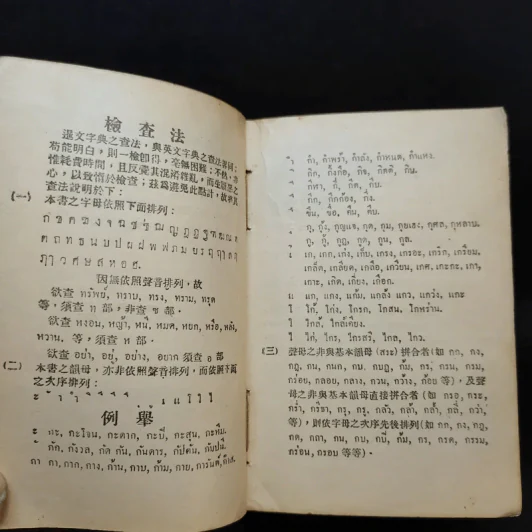 檢查法
暹文字典之查法，與英文字典之查法畧同；
苟能明白，則一檢卽得，毫無困難；不然，
惟耗費時間，且反覺其混淆
心，以致憚於檢查；茲為避免此點計，故將其
查法說明於下：
(一) 本書之字母依照下面排列：
ก ข ฃ ค ฅ ฆ ง จ ฉ ช ซ ฌ ญ ฎ ฏ ฐ ฑ ฒ ณ ด
ต ถ ท ธ น บ ป ผ ฝ พ ฟ ภ ม ย ร ฤ ฤๅ ล ฦ
ฦๅ ว ศ ษ ส ห ฬ อ ฮ.
因無依照聲音排列，故
欲查 ทรัพย์, ทราบ, ทรง, ทราม, ทรุด
等，須查 ท 部，非查 ซ 部．
欲查 หงอน, หญ้า, หนี, หมด, หยก, หรือ, หลัง,
หวาน. 等，須查 ห 部．
欲查 อย่า, อยู่, อย่าง, อยาก 須查 อ 部
(二) 本書之韻母，亦非依照聲音排列，而依照下面
之次序排列：
例 舉
ะ กะ, กะโจน, กะดาก, กะบี่, กะสุน, กะทิม.
กัก, กังวล, กัด กัน, กันดาร, กัปตัน, กัปปนี.
กา กา, กาก, กาง, ก้าน, กาบ, ก้าม, กาย, การันต์,
กำ, กำพร้า, กำลัง, กำหนด, กำแหง.
กิก, กิ่ง, กิจ, กิน.
กี่, กีด, กีบ.
กึก, กึกก้อง, กึ่ง.
ขื่น, ขื่อ, คืน, คืบ.
กุ, กุ้ง, กุญแจ, กุด, กุม, กุยเฮง, กุศล, กุหลาบ.
กู, กู้, กูฏ, กูด, กูน, กูล.
เก, เกก, เก่ง, เก็บ, เกรง, เกรอะ, เกริก, เกรียม,
เกลี่ย, เกลียด, เกลือ, เกวียน, เกศ, เกะกะ,
เกาะ, เกิด, เกี่ยง, เกือก.
แ แก, แกง, แก้ม, แกล้ง แกว, แกว่ง, แกะ
โ โก้, โก่ง, โกรก, โกสน, โกหร่าน.
ใ ใกล้, ใกล้เคียง.
ไ ไก่, ไกร, ไกรสร, ไกล, ไกว.
(三) 聲母之非與基本韻母 (สระ) 拼合者 (如 กก, กง,
กฎ, กน, กนก, กบ, กบฏ, กม, กร, กรน, กรม,
กร่อย, กลอก, กลาง, กวน, กว้าง, ก้อย 等)，及聲
母之非與基本韻母直接拼合者 (如 กรอ, กระ,
กร่ำ, กรา, กรุ, กรู, กลัว, กล้า, กล้ำ, กลี, กว่า,
等)，則依字母之次序先後排列 (如 กก, กง, กฎ,
กด, กถา, กน, กบ, กบี่, กม, กร, กรด, กรรม,
กร่อน, กรอบ 等等)．